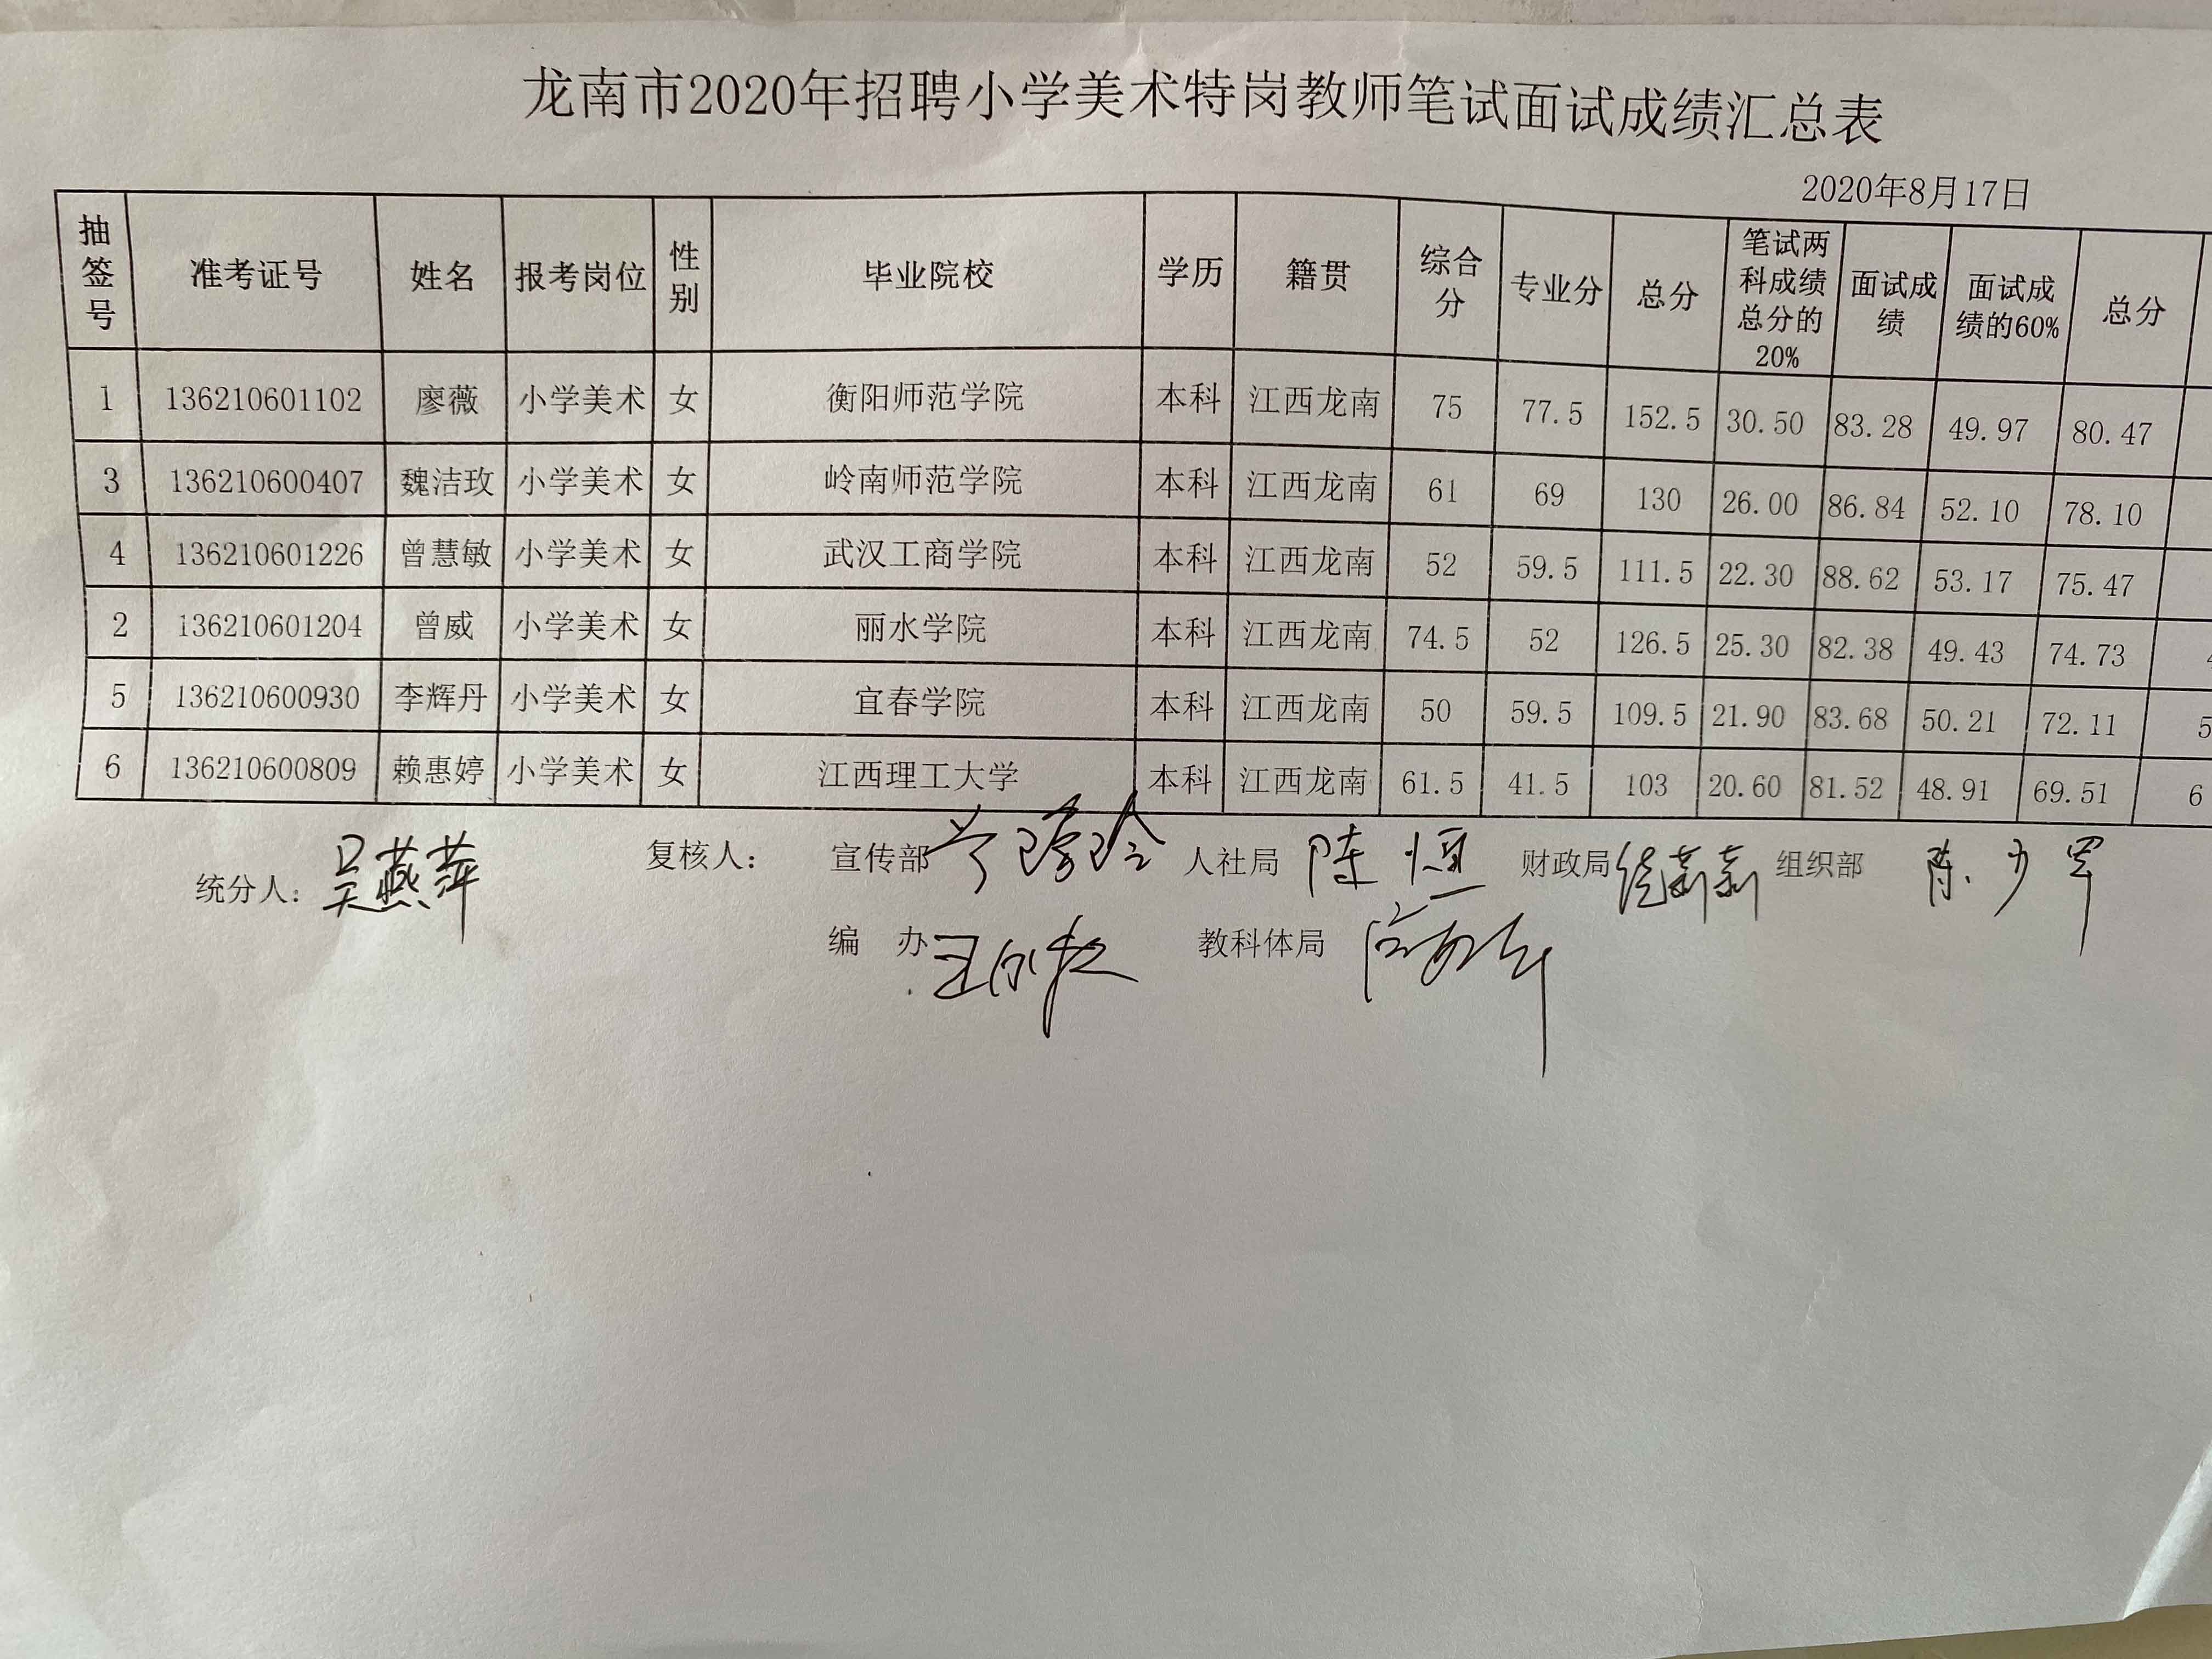 龙南市2020年招聘小学美术特岗教师笔试面试成绩汇总表
2020年8月17日
抽签号 准考证号 姓名 报考岗位 性别 毕业院校 学历 籍贯 综合分 专业分 总分 笔试两科成绩总分的20% 面试成绩 面试成绩的60% 总分
1 136210601102 廖薇 小学美术 女 衡阳师范学院 本科 江西龙南 75 77.5 152.5 30.50 83.28 49.97 80.47
3 136210600407 魏洁玫 小学美术 女 岭南师范学院 本科 江西龙南 61 69 130 26.00 86.84 52.10 78.10
4 136210601226 曾慧敏 小学美术 女 武汉工商学院 本科 江西龙南 52 59.5 111.5 22.30 88.62 53.17 75.47
2 136210601204 曾威 小学美术 女 丽水学院 本科 江西龙南 74.5 52 126.5 25.30 82.38 49.43 74.73
5 136210600930 李辉丹 小学美术 女 宜春学院 本科 江西龙南 50 59.5 109.5 21.90 83.68 50.21 72.11 5
6 136210600809 赖惠婷 小学美术 女 江西理工大学 本科 江西龙南 61.5 41.5 103 20.60 81.52 48.91 69.51 6
统分人： 吴燕萍 复核人： 宣传部 人社局 陈恒 财政局 组织部 陈
编 办 教科体局